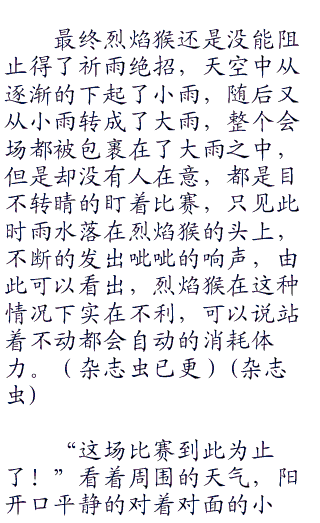 最终烈焰猴还是没能阻
止得了祈雨绝招，天空中从
逐渐的下起了小雨，随后又
从小雨转成了大雨，整个会
场都被包裹在了大雨之中，
但是却没有人在意，都是目
不转睛的盯着比赛，只见此
时雨水落在烈焰猴的头上，
不断的发出呲呲的响声，由
此可以看出，烈焰猴在这种
情况下实在不利，可以说站
着不动都会自动的消耗体
力。（杂志虫已更）(杂志
虫)
“这场比赛到此为止
了！”看着周围的天气，阳
开口平静的对着对面的小